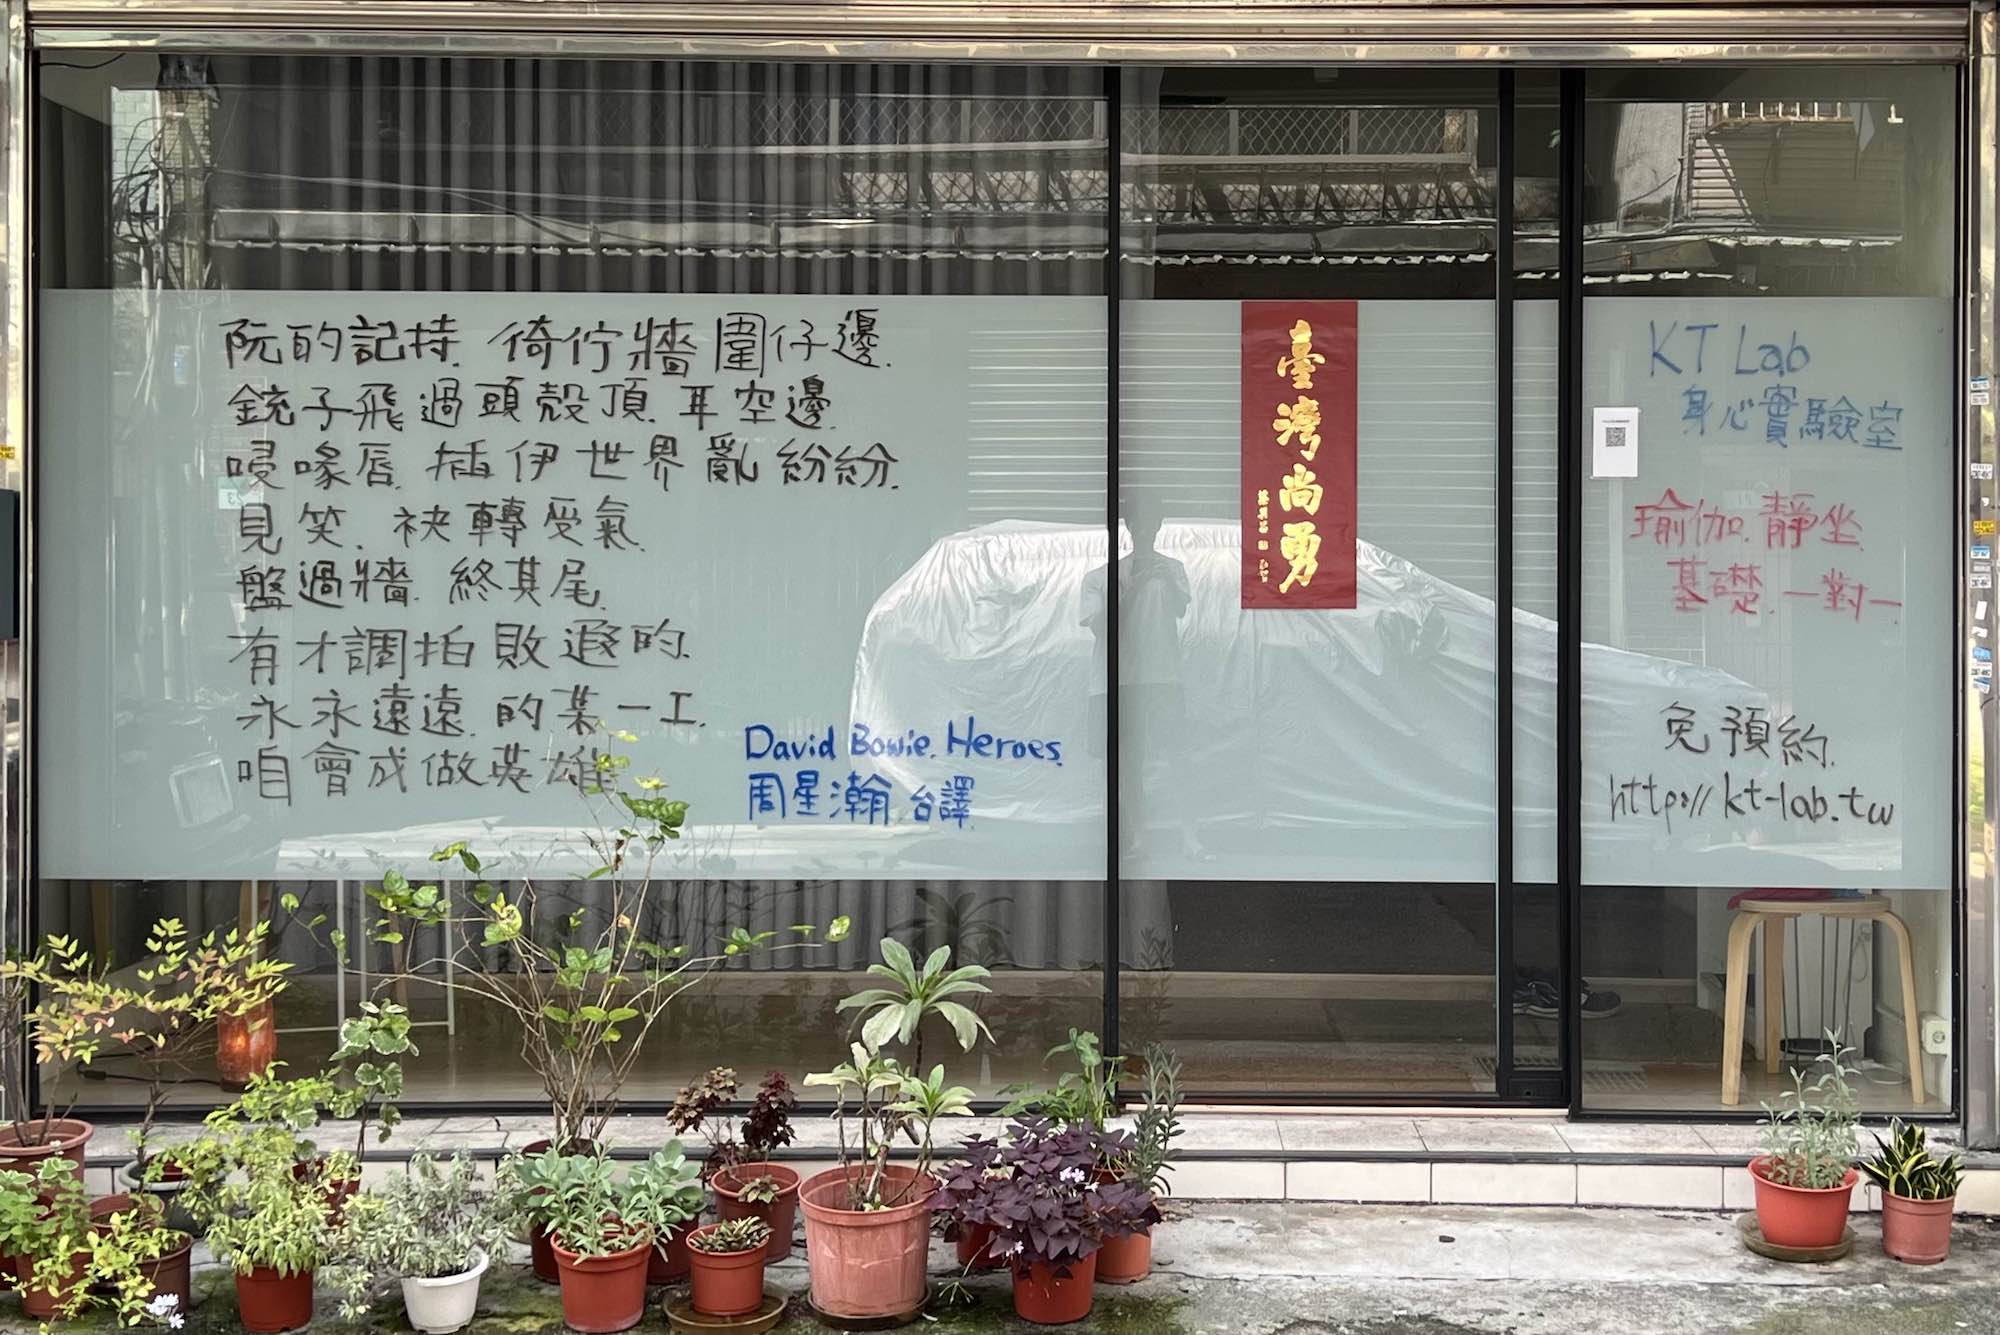 阮的記持. 倚佇牆圍仔邊.
銃子飛過頭殼頂. 耳空邊.
唚喙唇. 插伊世界亂紛紛.
見笑. 袂轉受氣.
盤過牆. 終其尾.
有才調拍敗遐的.
永永遠遠. 的某一工.
咱會成做英雄.
David Bowie. Heroes.
周星瀚 台譯.
臺灣尚勇
KT Lab
身心實驗室
瑜伽. 靜坐.
基礎. 一對一.
免預約.
http://kt-lab.tw